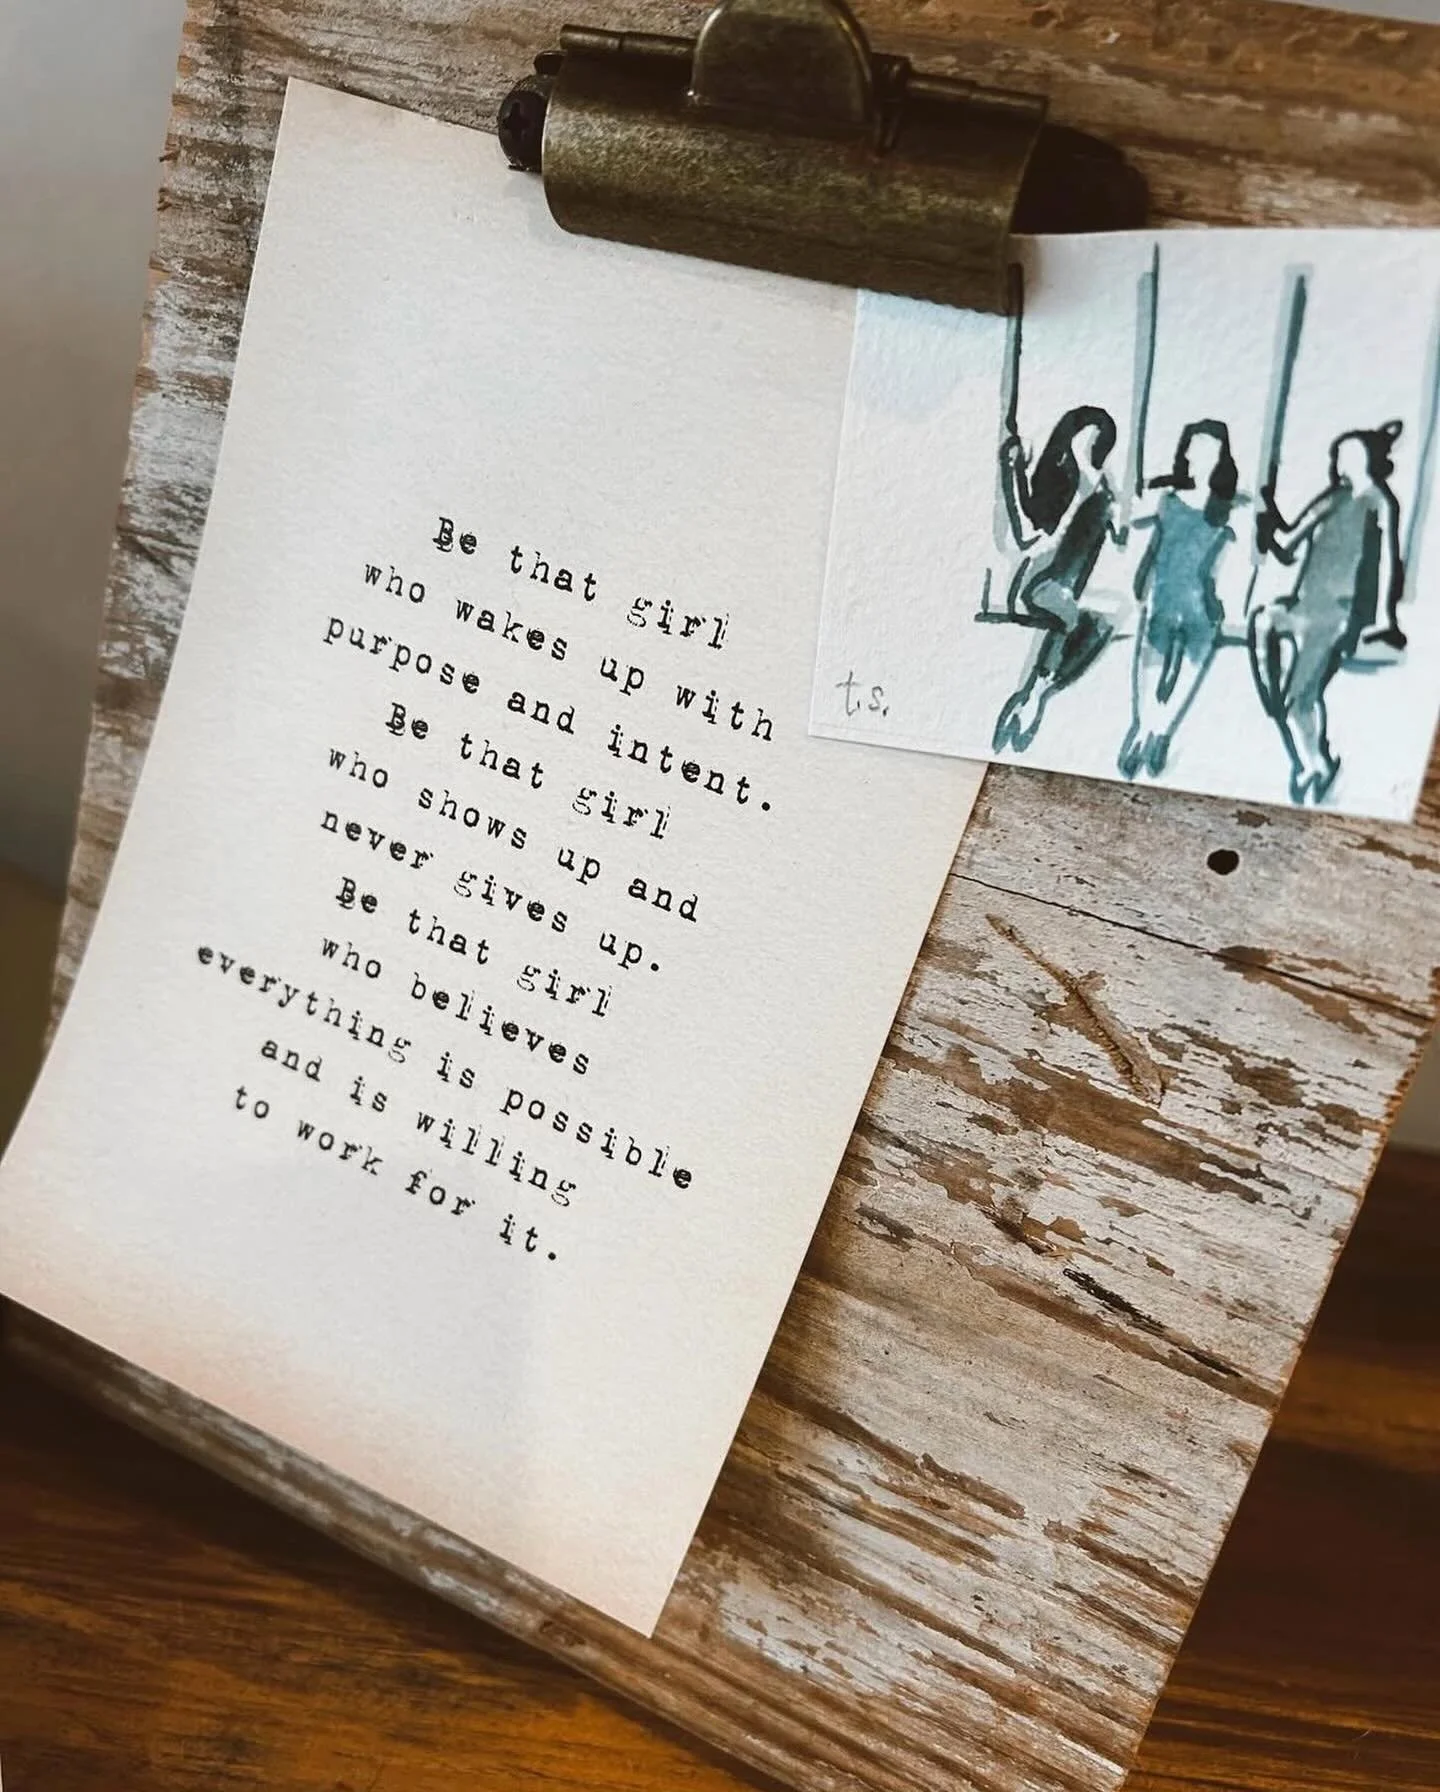 Be that girl
who wakes up with
purpose and intent.
Be that girl
who shows up and
never gives up.
Be that girl
who believes
everything is possible
and is willing
to work for it.
t.s.